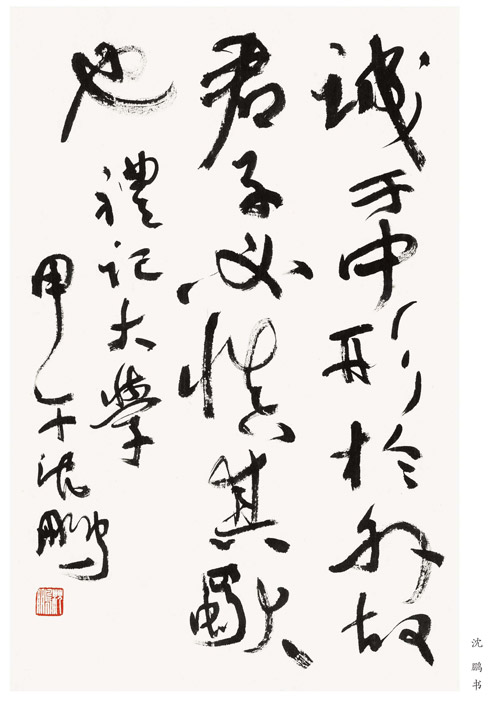 誠于中形於外故
君子必慎其獨
也
禮记大學
甲午沈鵬
沈鹏书